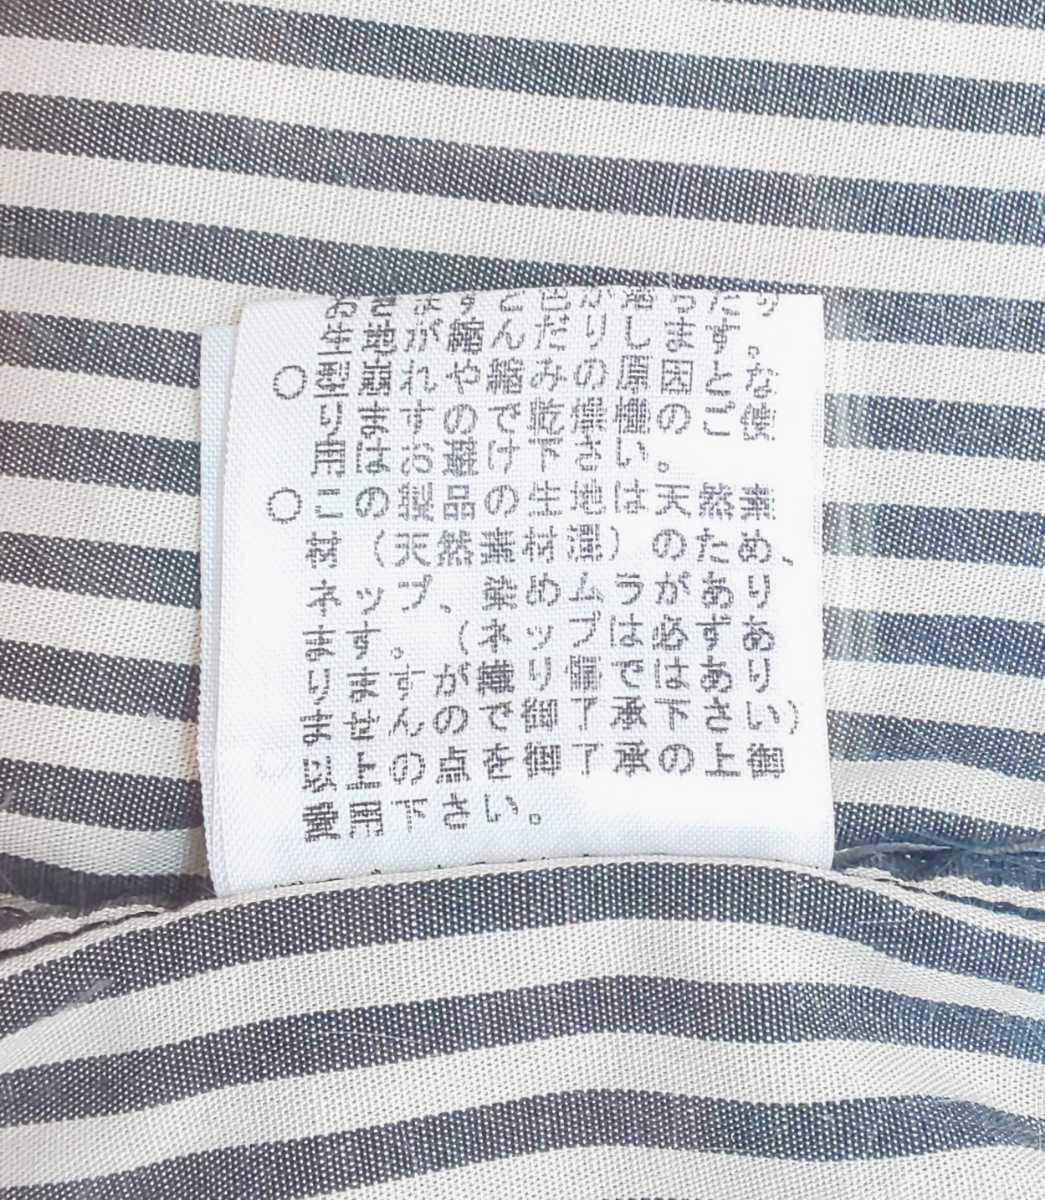 生地が縮んだりします。
○型崩れや縮みの原因とな
りますので乾燥機のご使
用はお避け下さい。
○この製品の生地は天然素
材(天然素材混)のため、
ネップ、染めムラがあり
ます。(ネップは必ずあ
りますが織り傷ではあり
ませんので御了承下さい)
以上の点を御了承の上御
愛用下さい。